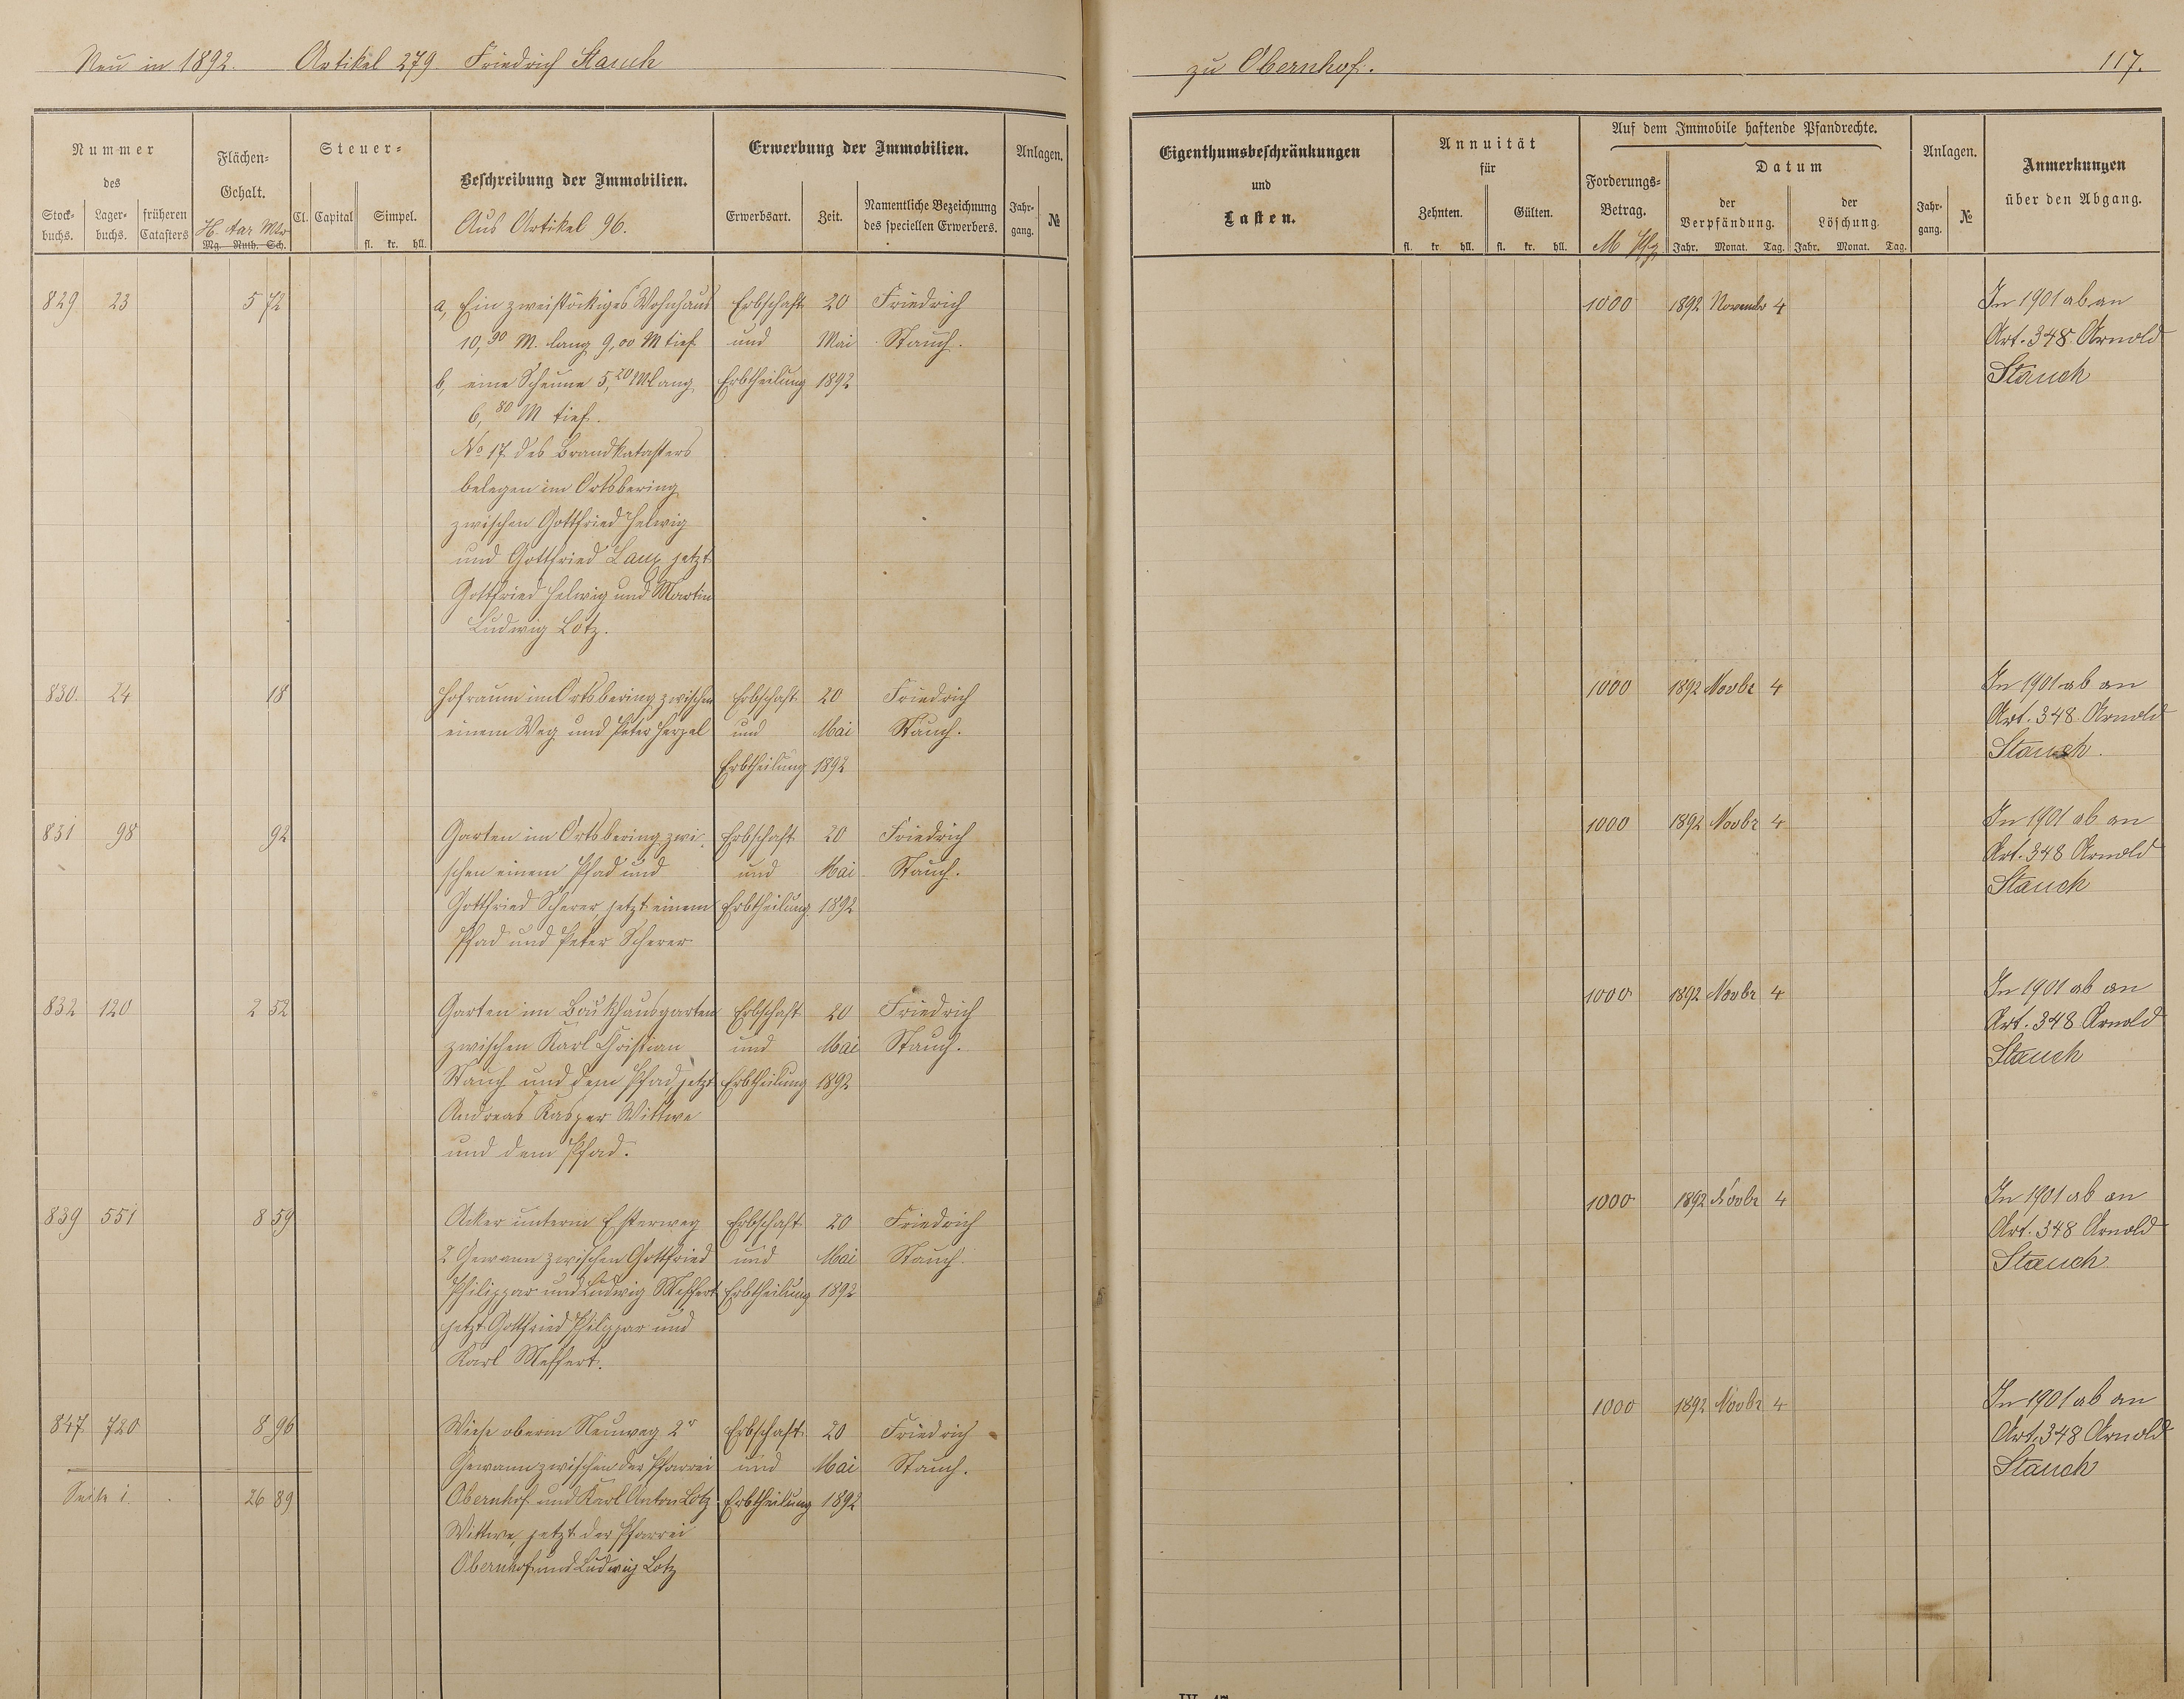 Neu in 1892. Artikel 279. Friedrich Stauch
zu Obernhof. 117.
Nummer
des
Stock-
buchs.
Lager-
buchs.
früheren
Catasters
Flächen-
Gehalt.
H. Aar Mtr
Mg. Ruth. Sch.
Steuer-
Cl. Capital Simpel.
fl. kr. hll.
Beschreibung der Immobilien.
Aus Artikel 96.
Erwerbung der Immobilien.
Erwerbsart. Zeit.
Namentliche Bezeichnung
des speciellen Erwerbers.
Anlagen.
Jahr-
gang.
№
Eigenthumsbeschränkungen
und
Lasten.
Annuität
für
Zehnten. Gülten.
fl. kr. hll. fl. kr. hll.
Auf dem Immobile haftende Pfandrechte.
Forderungs-
Betrag.
M Pfg
Datum
der
Verpfändung.
Jahr. Monat. Tag.
der
Löschung.
Jahr. Monat. Tag.
Anlagen.
Jahr-
gang.
№
Anmerkungen
über den Abgang.
829 23 5 72 a, Ein zweistöckiges Wohnhaus Erbschaft 20 Friedrich
10,90 M. lang 9,00 M tief und Mai Stauch.
b, eine Scheune 5,20 M lang Erbtheilung 1892
6,80 M tief.
No 17 des Brandkatasters
belegen im Ortsbering
zwischen Gottfried Helwig
und Gottfried Laux jetzt
Gottfried Helwig und Martin
Ludwig Lotz.
1000 1892 November 4 In 1901 ab an
Art. 348 Arnold
Stauch
830. 24 18 Hofraum im Ortsbering zwischen Erbschaft 20 Friedrich
einem Weg und Peter Herzel und Mai Stauch.
Erbtheilung 1892
1000 1892 Novbr 4 In 1901 ab an
Art. 348 Arnold
Stauch.
831 98 92 Garten im Ortsbering zwi- Erbschaft 20 Friedrich
schen einem Pfad und und Mai Stauch.
Gottfried Scherer, jetzt einem Erbtheilung 1892
Pfad und Peter Scherer
1000 1892 Novbr 4 In 1901 ab an
Art. 348 Arnold
Stauch
832 120 2 52 Garten im Backhausgarten Erbschaft 20 Friedrich
zwischen Karl Christian und Mai Stauch.
Stauch und dem Pfad, jetzt Erbtheilung 1892
Andreas Kasper Wittwe
und dem Pfad.
1000 1892 Novbr 4 In 1901 ab an
Art. 348 Arnold
Stauch
839 551 8 59 Acker unterm Esterweg Erbschaft 20 Friedrich
2 Gewann zwischen Gottfried und Mai Stauch.
Philippar und Ludwig Meffert Erbtheilung 1892
jetzt Gottfried Philippar und
Karl Meffert.
1000 1892 Novbr 4 In 1901 ab an
Art. 348 Arnold
Stauch
847 720 8 96 Wiese oberm Neuweg 2r Erbschaft 20 Friedrich
Gewann zwischen der Pfarrei und Mai Stauch.
Seite 1. 26 89 Obernhof und Karl Anton Lotz Erbtheilung 1892
Wittwe, jetzt der Pfarrei
Obernhof und Ludwig Lotz
1000 1892 Novbr 4 In 1901 ab an
Art. 348 Arnold
Stauch